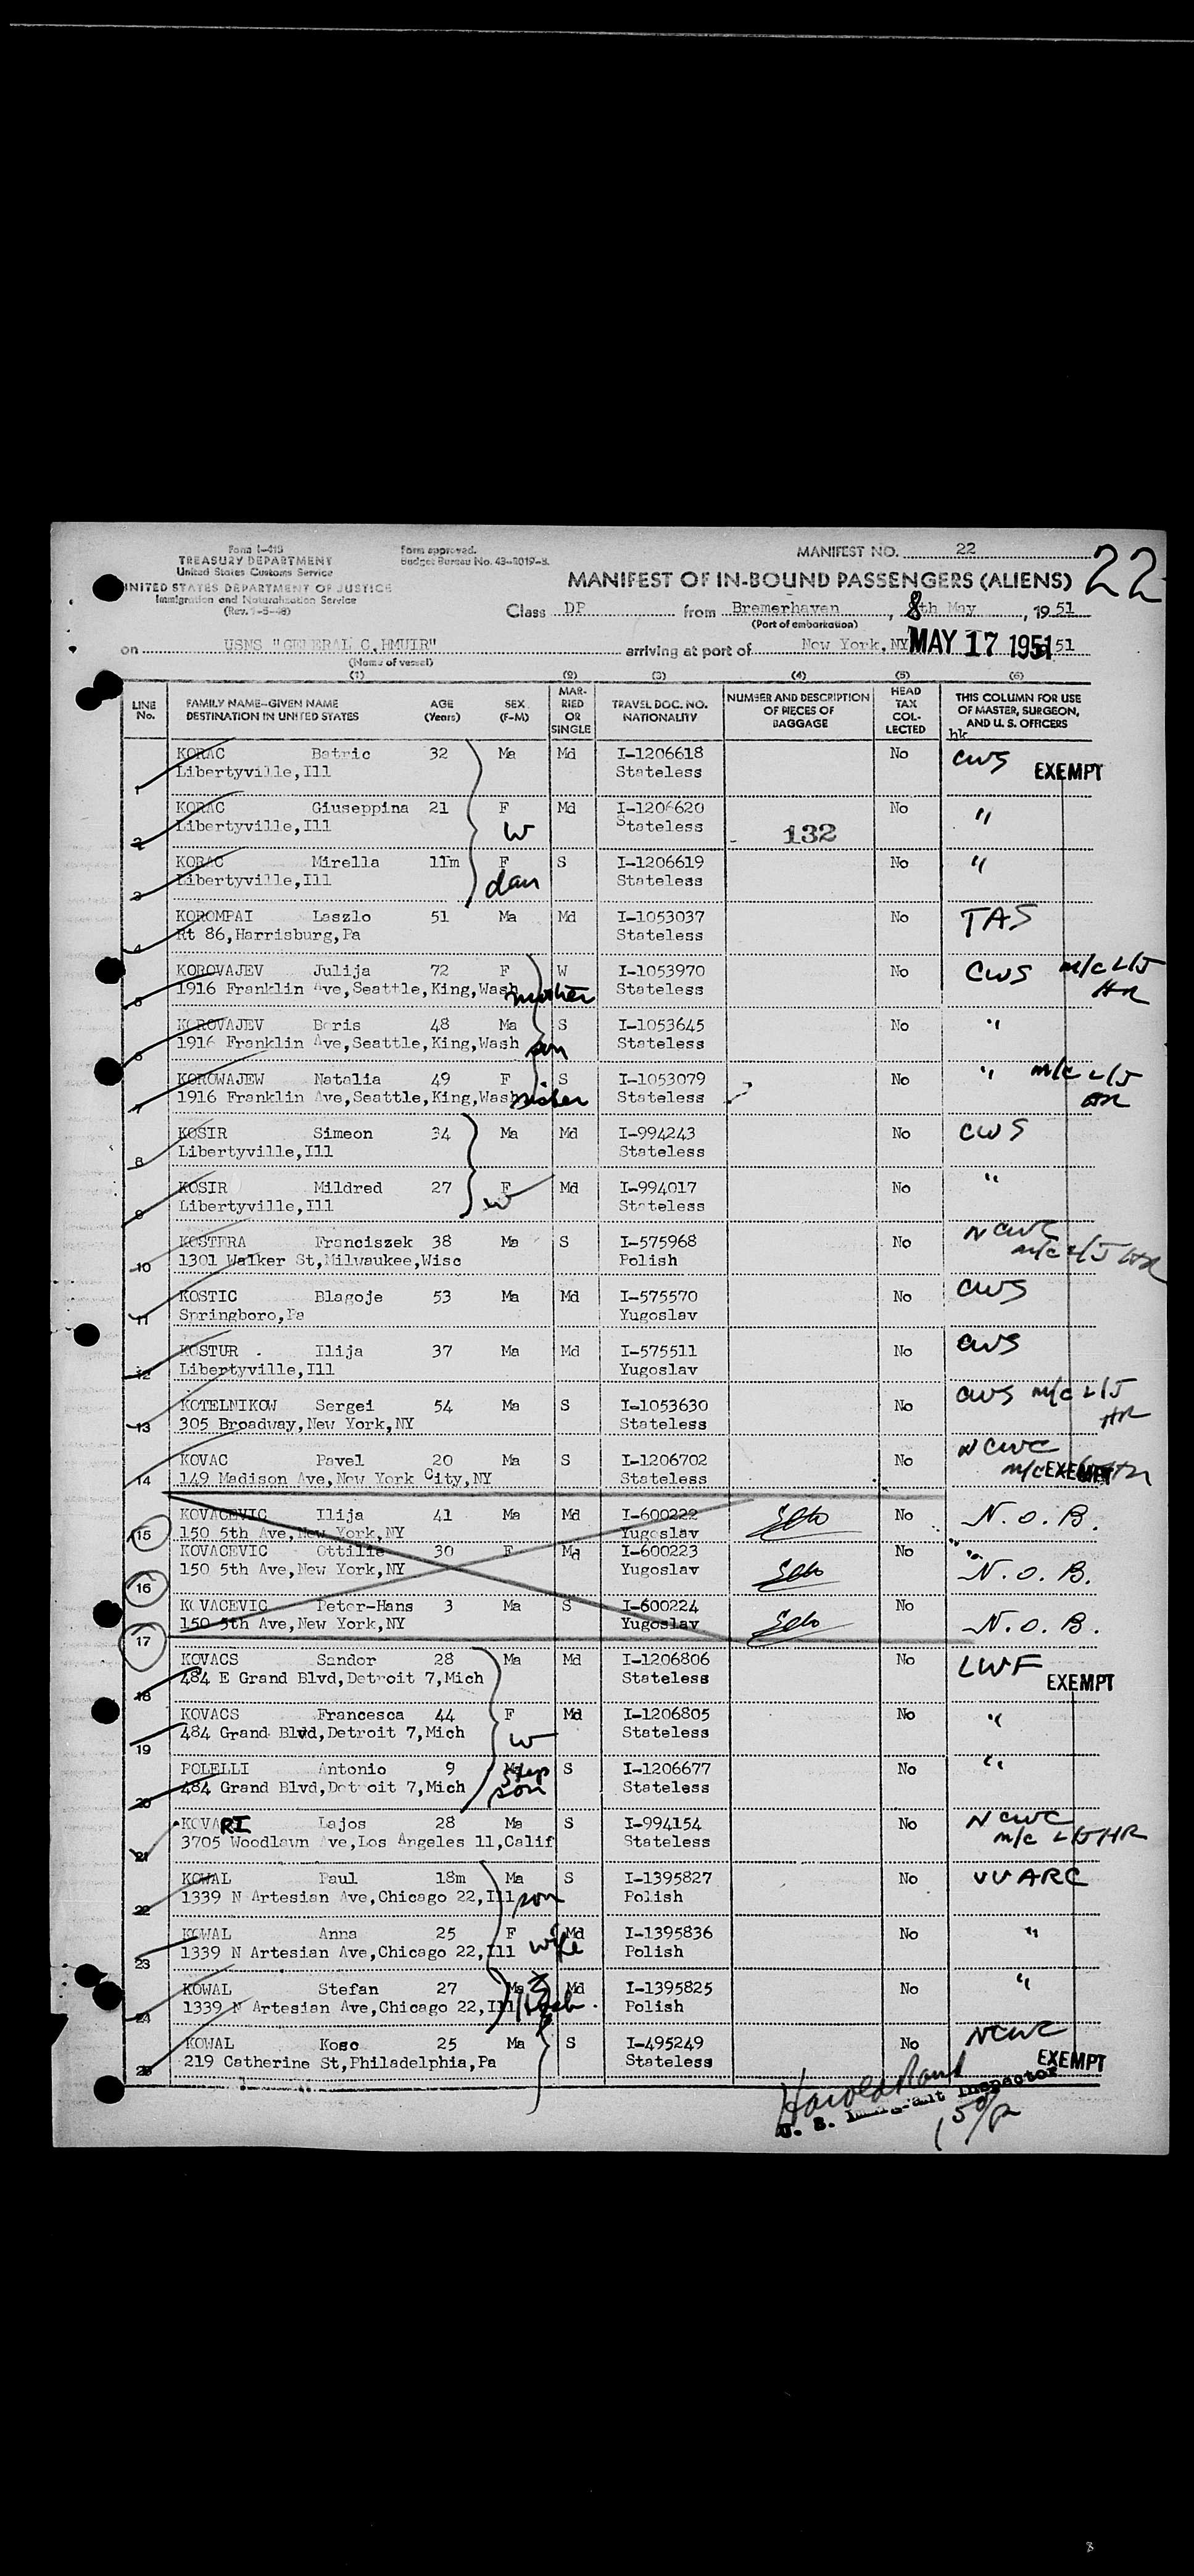 Form I-418
TREASURY DEPARTMENT
United States Customs Service
UNITED STATES DEPARTMENT OF JUSTICE
Immigration and Naturalization Service
(Rev. 1-5-48)
Form approved.
Budget Bureau No. 43-R019-8.
MANIFEST NO. 22
22
MANIFEST OF IN-BOUND PASSENGERS (ALIENS)
Class DP from Bremerhaven, 8th May, 1951
(Port of embarkation)
on USNS "GENERAL C.HMUIR" arriving at port of New York, NY MAY 17 1951 51
(Name of vessel)
(1) (2) (3) (4) (5) (6)
LINE No. FAMILY NAME-GIVEN NAME DESTINATION IN UNITED STATES AGE (Years) SEX (F-M) MARRIED OR SINGLE TRAVEL DOC. NO. NATIONALITY NUMBER AND DESCRIPTION OF PIECES OF BAGGAGE HEAD TAX COLLECTED THIS COLUMN FOR USE OF MASTER, SURGEON, AND U. S. OFFICERS
hk
1 KORAC Batric 32 Ma Md I-1206618 No CWS EXEMPT
Libertyville,Ill Stateless
2 KORAC Giuseppina 21 F Md I-1206620 No "
Libertyville,Ill W Stateless 132
3 KORAC Mirella 11m F S I-1206619 No "
Libertyville,Ill dau Stateless
4 KOROMPAI Laszlo 51 Ma Md I-1053037 No TAS
Rt 86,Harrisburg,Pa Stateless
5 KOROVAJEV Julija 72 F W I-1053970 No CWS m/c L/J HR
1916 Franklin Ave,Seattle,King,Wash mother Stateless
6 KOROVAJEV Boris 48 Ma S I-1053645 No "
1916 Franklin Ave,Seattle,King,Wash son Stateless
7 KOROWAJEW Natalia 49 F S I-1053079 No " m/c L/J HR
1916 Franklin Ave,Seattle,King,Wash sister Stateless
8 KOSIR Simeon 34 Ma Md I-994243 No CWS
Libertyville,Ill Stateless
9 KOSIR Mildred 27 F Md I-994017 No "
Libertyville,Ill W Stateless
10 KOSTERA Franciszek 38 Ma S I-575968 No NCWC m/c L/J HR
1301 Walker St,Milwaukee,Wisc Polish
11 KOSTIC Blagoje 53 Ma Md I-575570 No CWS
Springboro,Pa Yugoslav
12 KOSTUR Ilija 37 Ma Md I-575511 No CWS
Libertyville,Ill Yugoslav
13 KOTELNIKOW Sergei 54 Ma S I-1053630 No CWS m/c L/J HR
305 Broadway,New York,NY Stateless
14 KOVAC Pavel 20 Ma S I-1206702 No NCWC
149 Madison Ave,New York City,NY Stateless m/c EXEMPT
15 KOVACEVIC Ilija 41 Ma Md I-600222 No N.O.B.
150 5th Ave,New York,NY Yugoslav
16 KOVACEVIC Ottilie 30 F Md I-600223 No N.O.B.
150 5th Ave,New York,NY Yugoslav
17 KOVACEVIC Peter-Hans 3 Ma S I-600224 No N.O.B.
150 5th Ave,New York,NY Yugoslav
18 KOVACS Sandor 28 Ma Md I-1206806 No LWF EXEMPT
484 E Grand Blvd,Detroit 7,Mich Stateless
19 KOVACS Francesca 44 F Md I-1206805 No "
484 Grand Blvd,Detroit 7,Mich W Stateless
20 POLELLI Antonio 9 Ma S I-1206677 No "
484 Grand Blvd,Detroit 7,Mich step son Stateless
21 KOVARI Lajos 28 Ma S I-994154 No NCWC m/c L/J HR
3705 Woodlawn Ave,Los Angeles 11,Calif Stateless
22 KOWAL Paul 18m Ma S I-1395827 No UUARC
1339 N Artesian Ave,Chicago 22,Ill son Polish
23 KOWAL Anna 25 F Md I-1395836 No "
1339 N Artesian Ave,Chicago 22,Ill wife Polish
24 KOWAL Stefan 27 Ma Md I-1395825 No "
1339 N Artesian Ave,Chicago 22,Ill Polish
25 KOWAL Koso 25 Ma S I-495249 No NCWC
219 Catherine St,Philadelphia,Pa Stateless EXEMPT
U. S. Immigrant Inspector